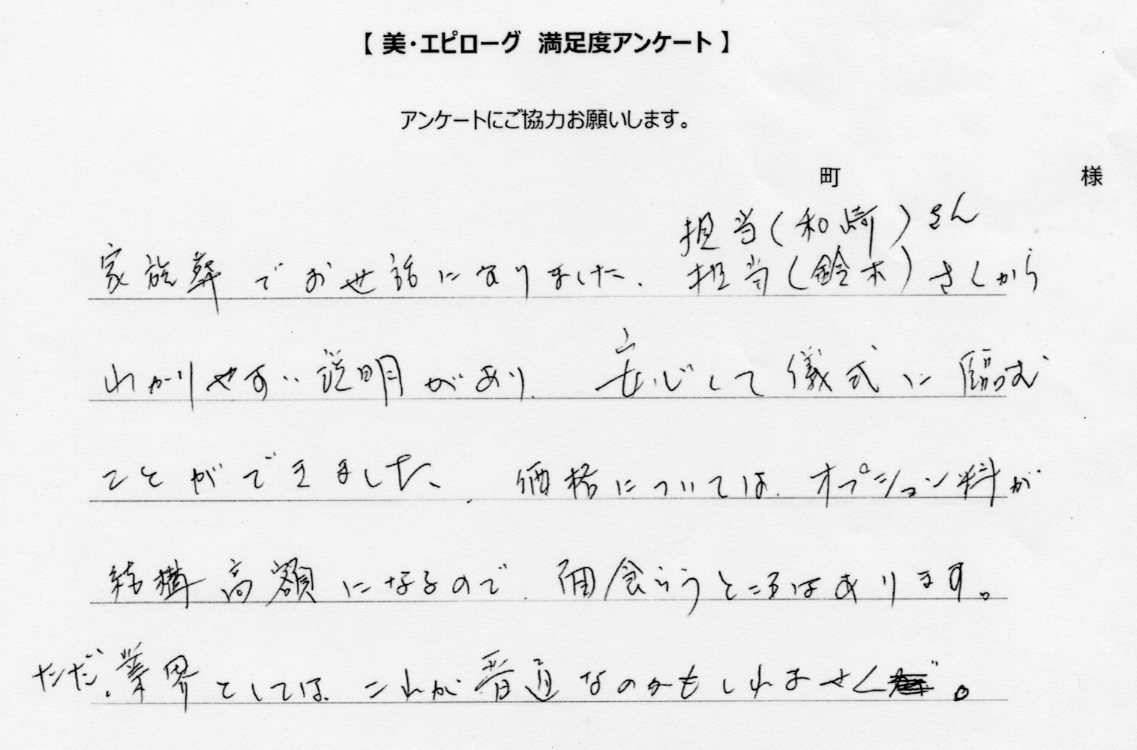 【 美・エピローグ 満足度アンケート 】
アンケートにご協力お願いします。
町 様
担当(和崎)さん
家族葬でお世話になりました、担当(鈴木)さんから
わかりやすい説明があり、安心して儀式に臨む
ことができました、価格については、オプション料が
結構高額になるので、面食らうところはあります。
ただ、業界としては、これが普通なのかもしれません。